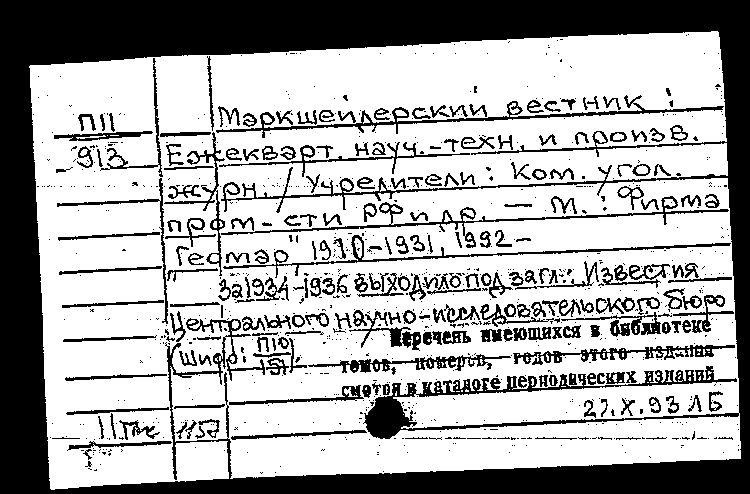 П11
913
Маркшейдерский вестник :
Ежекварт. науч.-техн. и произв.
журн. / Учредители: Ком. угол.
пром-сти РФ и др. — М. : Фирма
"Геомар", 1910-1931, 1992 -
За 1934-1936 выходило под загл.: Известия
Центрального научно-исследовательского бюро
(Шифр: П10/151).
Перечень имеющихся в библиотеке
томов, номеров, годов этого издания
смотри в каталоге периодических изданий
27.X.93 ЛБ
1157